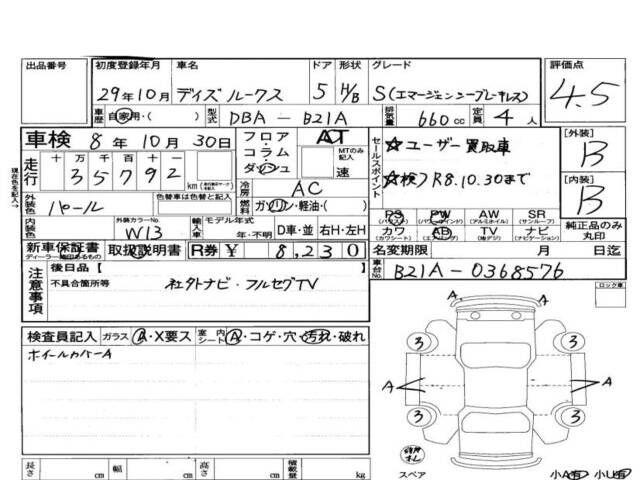 出品番号 初度登録年月 車名 ドア 形状 グレード 評価点
29年10月 デイズ ルークス 5 H/B S(エマージェンシーブレーキレス) 4.5
車歴 自家用・( ) 型式 DBA－B21A 排気量 660cc 定員 4人
車検 8年10月30日 フロア・コラム・ダッシュ AT MTのみ記入 速
セールスポイント ☆ユーザー買取車
☆検R8.10.30まで
[外装] B
[内装] B
現在色を記入→
走行 十 万 千 百 十 一
35792 km
冷房 AC
外装色 パール 色替車は色替と記入 燃料 ガソリン・軽油・( )
PS PW AW SR
(パワステ) (パワーウインド) (アルミホイル) (サンルーフ)
カワ AB TV ナビ
(カワシート) (エアバッグ) (地デジ) (ナビゲーション)
純正品のみ丸印
内装色 外装カラーNo. W13 輸入車 モデル年式 年・不明 D車・並 右H・左H
新車保証書 取扱説明書 R券 ¥ 8,230
名変期限 月 日迄
車台No. B21A－0368576
注意事項 後日品【 】
不具合箇所等 社外ナビ・フルセグTV
ロック車
検査員記入 ガラス A・X要ス 室内シート A・コゲ・穴・汚れ・破れ
ホイールカバーA
A A
3 3
A A
3 3
スペア
小A有 小U有
長さ cm 幅 cm 高さ cm 積載量 kg